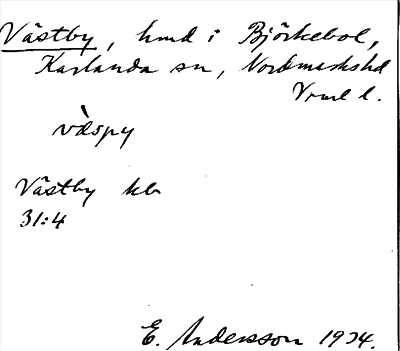 Västby, hmd i Björkebol,
Karlanda sn, Nordmarkshd
Vrml l.
vàspy
Västby kb
31:4
E. Andersson 1934.